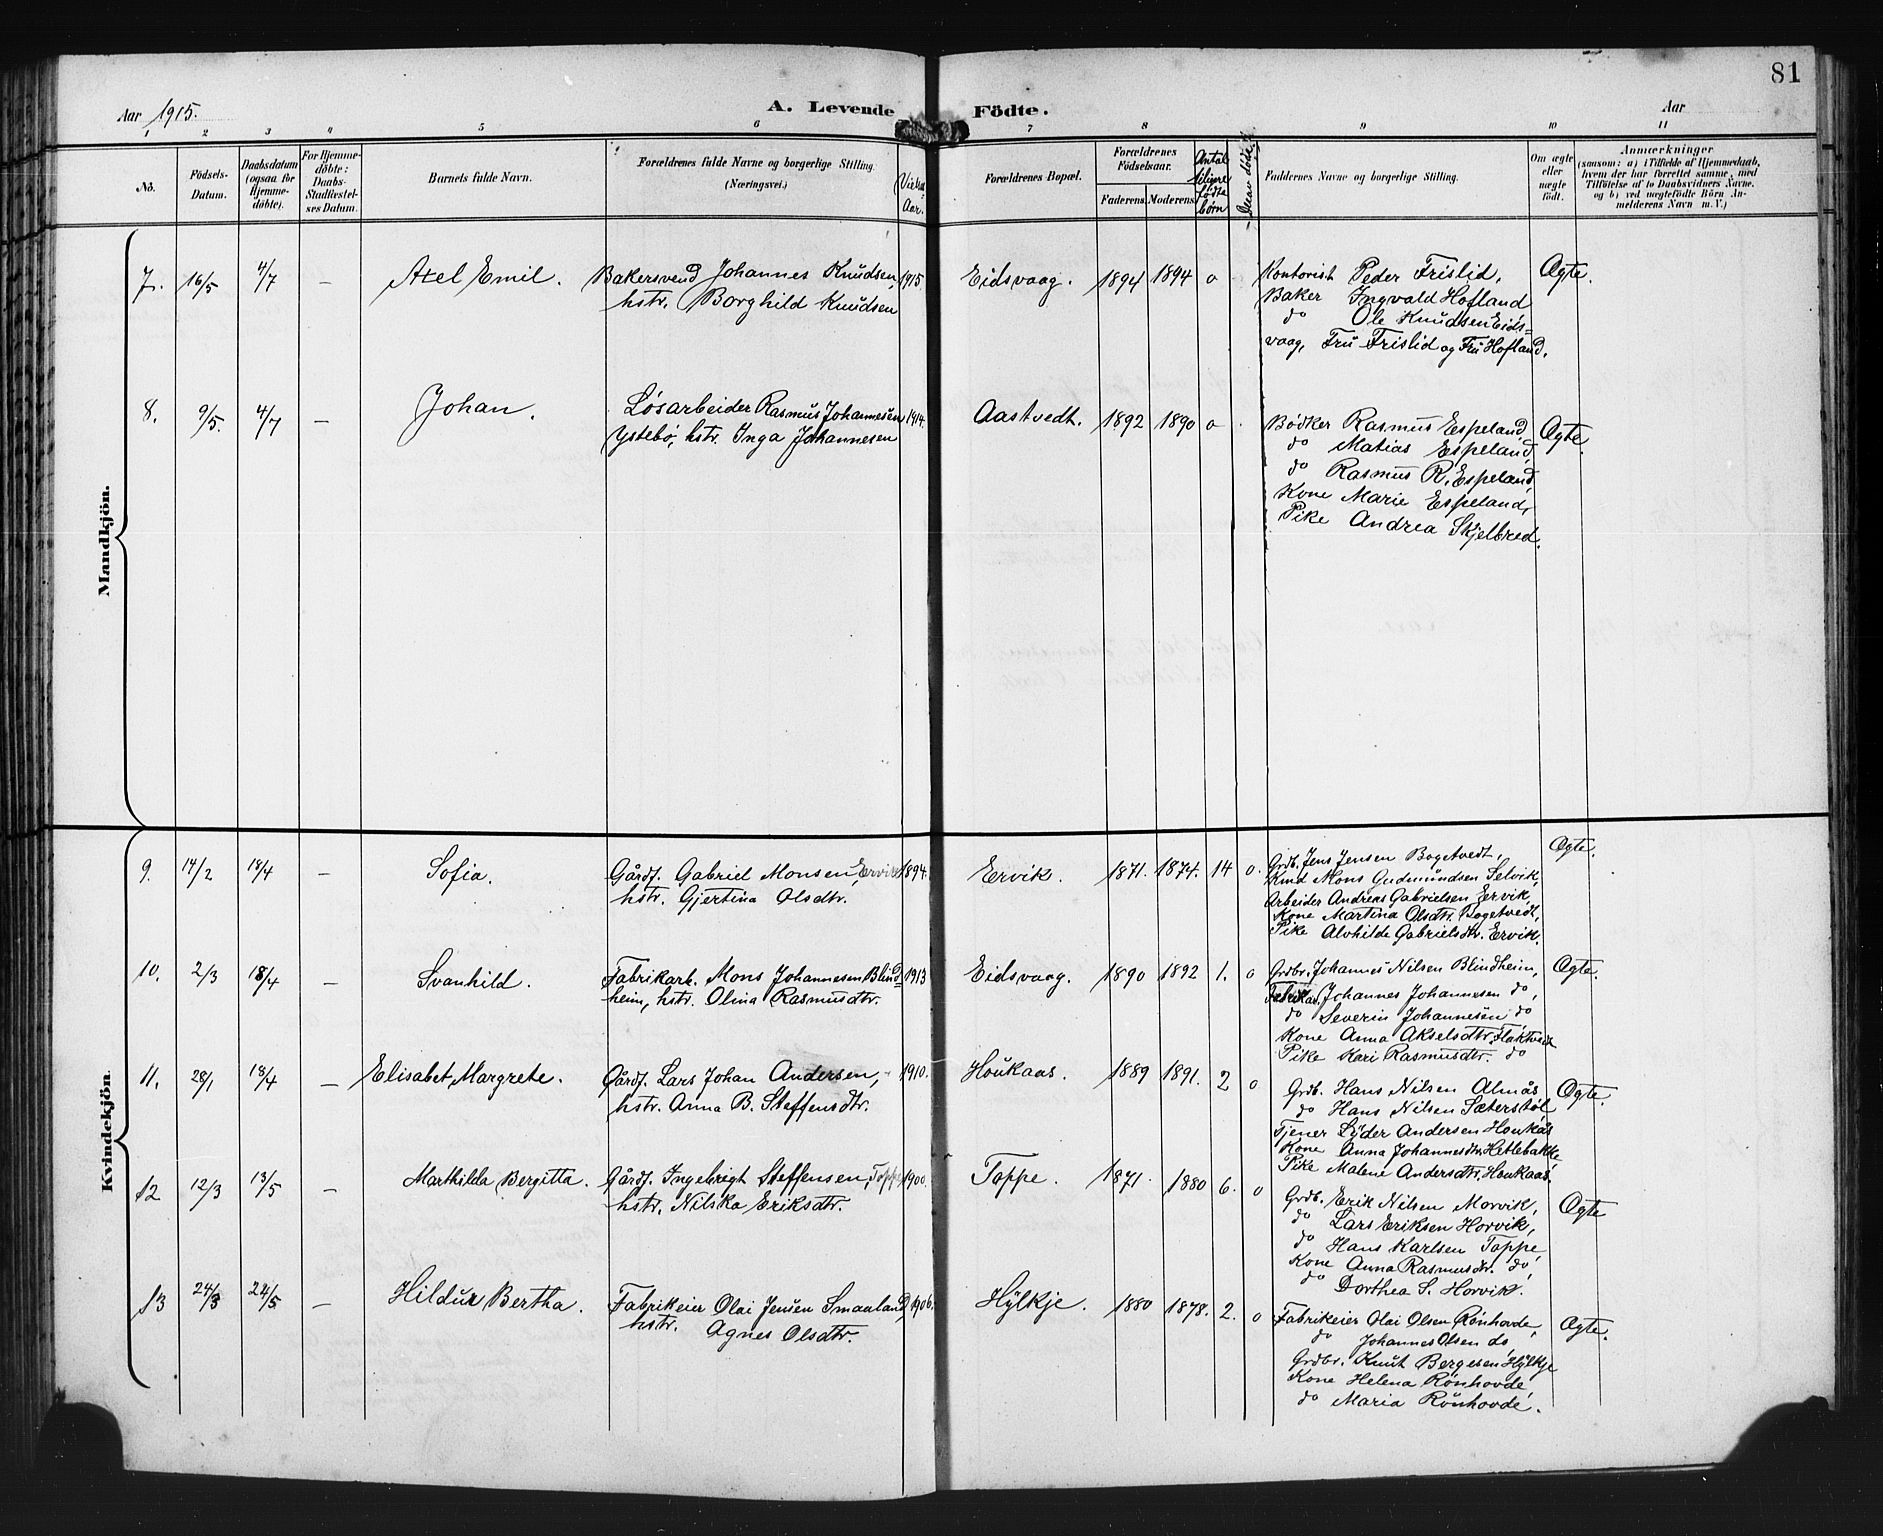 81
Aar 1915.
A. Levende Födte.
Aar
1 2 3 4 5 6 7 8 9 10 11
No.
Födsels-
Datum.
Daabsdatum
(ogsaa för
Hjemme-
döbte).
For Hjemme-
döbte:
Daabs-
Stadfæstel-
ses Datum.
Barnets fulde Navn.
Forældrenes fulde Navne og borgerlige Stilling
(Næringsvei.)
Vielses
Aar.
Forældrenes Bopæl.
Forældrenes
Födselsaar.
Faderens. Moderens.
Antal
tidligere
fødte
børn
Derav døde.
Faddernes Navne og borgerlige Stilling.
Om ægte
eller
uægte
födt.
Anmærkninger
(saasom: a) i Tilfælde af Hjemmedaab,
hvem der har forrettet samme, med
Tilföielse af to Daabsvidners Navne.
og b) ved uægtefödte Börn An-
melderens Navn m. V.)
Mandkjön.
7. 16/5 4/7 – Axel Emil. Bakersvend Johannes Knudsen, 1915. Eidsvaag. 1894 1894 0 Kontorist Peder Frislid, Ægte.
hstr. Borghild Knudsen
Baker Ingvald Hofland
do Ole Knudsen Eids=
vaag, Fru Frislid og Fru Hofland.
8. 9/5 4/7 – Johan. Løsarbeider Rasmus Johannesen 1914. Aastvedt. 1892 1890 0 Bødker Rasmus Espeland, Ægte.
Ystebø, hstr. Inga Johannesen
do Matias Espeland,
do Rasmus R. Espeland,
Kone Marie Espeland,
Pike Andrea Skjelbred.
Kvindekjön.
9. 14/2 18/4 – Sofia. Gårdf. Gabriel Monsen Ervik 1894. Ervik. 1871. 1874. 14 0. Grdb. Jens Jensen Bogetvedt, Ægte.
hstr. Gjertina Olsdtr.
Kmd Mons Gudmundsen Selvik,
Arbeider Andreas Gabrielsen Ervik,
Kone Martina Olsdtr. Bogetvedt,
Pike Alvhilde Gabrielsdtr. Ervik.
10. 2/3 18/4 – Svanhild. Fabrikarb. Mons Johannesen Blind= 1913 Eidsvaag. 1890 1892 1. 0 Grdbr. Johannes Nilsen Blindheim, Ægte.
heim, hstr. Olina Rasmusdtr.
Fabrikar. Johannes Johannesen do,
do Severin Johannesen do
Kone Anna Akselsdtr. Flaktveit
Pike Kari Rasmusdtr. do
11. 28/1 18/4 – Elisabet Margrete. Gårdf. Lars Johan Andersen, 1910. Houkaas. 1889 1891. 2 0 Grdb. Hans Nilsen Almås Ægte.
hstr. Anna B. Steffensdtr.
do Hans Nilsen Sæterstøl
Tjener Lyder Andersen Houkås
Kone Anna Johannesdtr. Hetlebakke
Pike Malene Andersdtr. Houkaas.
12 12/3 13/5 – Marthilda Bergitta. Gårdf. Ingebrigt Steffensen, Toppe 1900. Toppe. 1871. 1880 6. 0 Grdb. Erik Nilsen Morvik, Ægte
hstr. Nilska Eriksdtr.
do Lars Eriksen Horvik,
do Hans Karlsen Toppe,
Kone Anna Rasmusdtr. do,
do Dorthea S. Horvik.
13 24/3 24/5 – Hildur Bertha. Fabrikeier Olai Jensen Smaaland, 1906. Hylkje. 1880 1878. 2. 0 Fabrikeier Olai Olsen Rønhovde, Ægte.
hstr. Agnes Olsdtr.
do Johannes Olsen do
Grdbr. Knut Bergesen Hylkje
Kone Helena Rønhovde,
do Maria Rønhovde.